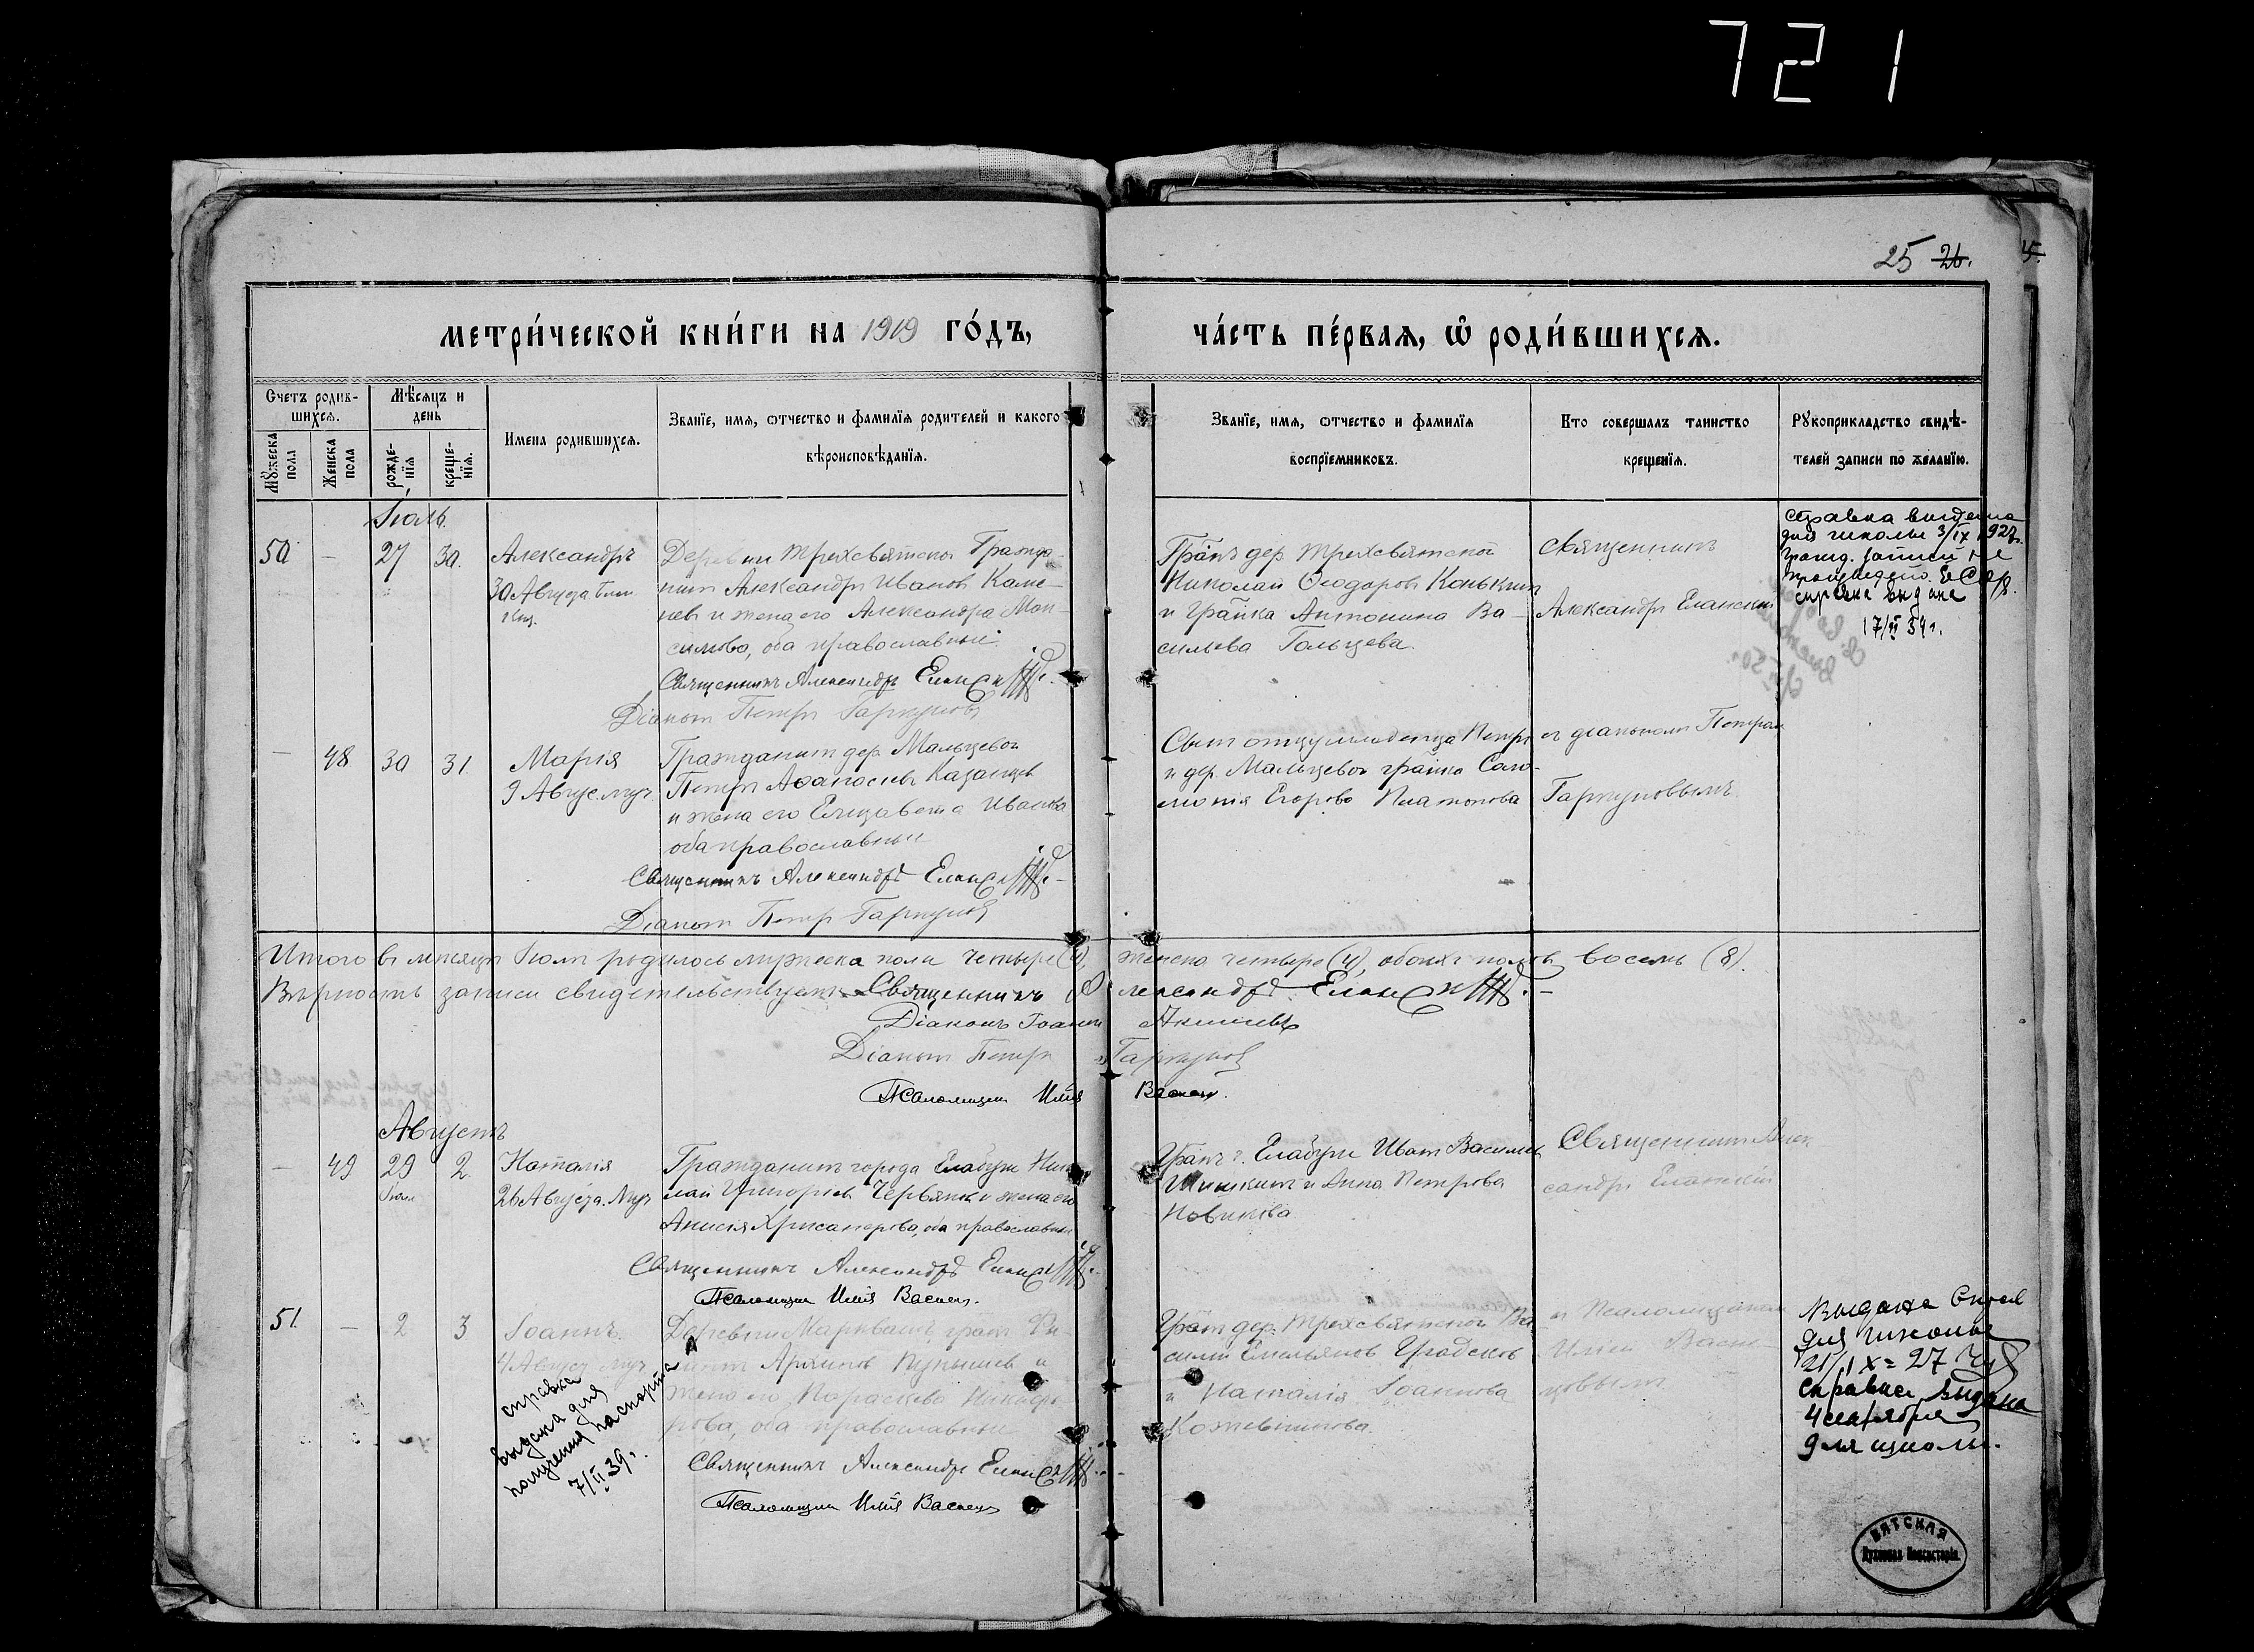 721
25 26.
МЕТРИ́ЧЕСКОЙ КНИ́ГИ НА 1919 ГО́ДЪ,
ЧА́СТЬ ПЕ́РВАЯ, Ѡ҆ РОДИ́ВШИХСЯ.
Счетъ родив-
шихся.
Мужеска пола
Женска пола
Мѣсяцъ и
день
рожде-
нія
креще-
нія.
Имена родившихся.
Званіе, имя, отчество и фамилія родителей и какого
вѣроисповѣданія.
Званіе, имя, отчество и фамилія
воспріемниковъ.
Кто совершалъ таинство
крещенія.
Рукоприкладство свидѣ-
телей записи по желанію.
Іюль.
50 — 27 30. Александръ
30 Августа
Деревни Трехсвятской Гражда-
нинъ Александръ Ивановъ Каме-
невъ и жена его Александра Мак-
симова, оба православные.
Священникъ Александръ
Діаконъ Петръ Гаркуновъ
Гра̃нъ дер. Трехсвятской
Николай Ѳеодоровъ Конькинъ
и гра̃нка Антонина Ва-
сильева Гольцева.
Священникъ
Александръ Еланскій
справка выдана
для школы 3/IX 1927г.
справка выдана
17/II 34г.
— 48 30 31. Марія
9 Авгус. муч.
Гражданинъ дер. Мальцевой
Петръ Аѳанасіевъ Казанцев
и жена его Елизавета Иванова
оба православные
Священникъ Александръ
Діаконъ Петръ Гаркуновъ
Петръ
и дер. Мальцевой гра̃нка Соло-
монія Егорова Платонова
съ діакономъ Петромъ
Гаркуновымъ.
Итого въ мѣсяцѣ Іюлѣ родилось мужеска пола четыре (4), женска четыре (4), обоихъ половъ восемь (8).
Вѣрность записи свидетельствуемъ: Священникъ Александръ
Діаконъ Іоаннъ Акишевъ
Діаконъ Петръ Гаркуновъ
Псаломщикъ Илія Васнецовъ
Августъ
— 49 29 2. Наталія
Іюля 26 Августа. Муч.
Гражданинъ города Елабуги Нико-
лай Григорьевъ Червяковъ и жена его
Анисія Хрисанфова, оба православные
Священникъ Александръ
Псаломщикъ Илія Васнец.
Гра̃нъ г. Елабуги Иванъ Васильевъ
Шишкинъ и Анна Петрова
Новикова
Священникъ Алек-
сандръ Еланскій
51. — 2 3 Іоаннъ.
4 Август. муч.
справка
выдана для
получения паспорта
7/II 39г.
жена его Параскева Никифо-
рова, оба православные
Священникъ Александръ
Псаломщикъ Илія Васнецовъ
Гра̃нъ дер. Трехсвятской Ва-
силій Емельяновъ Градсковъ
и Наталія Іоаннова
Кожевникова.
и Псаломщикомъ
Иліей Васне-
цовымъ
Выдана
для школы
21/IX=27
справка выдана
4 сентября
для школы.
ВЯТСКАЯ
Духовная Консисторія.